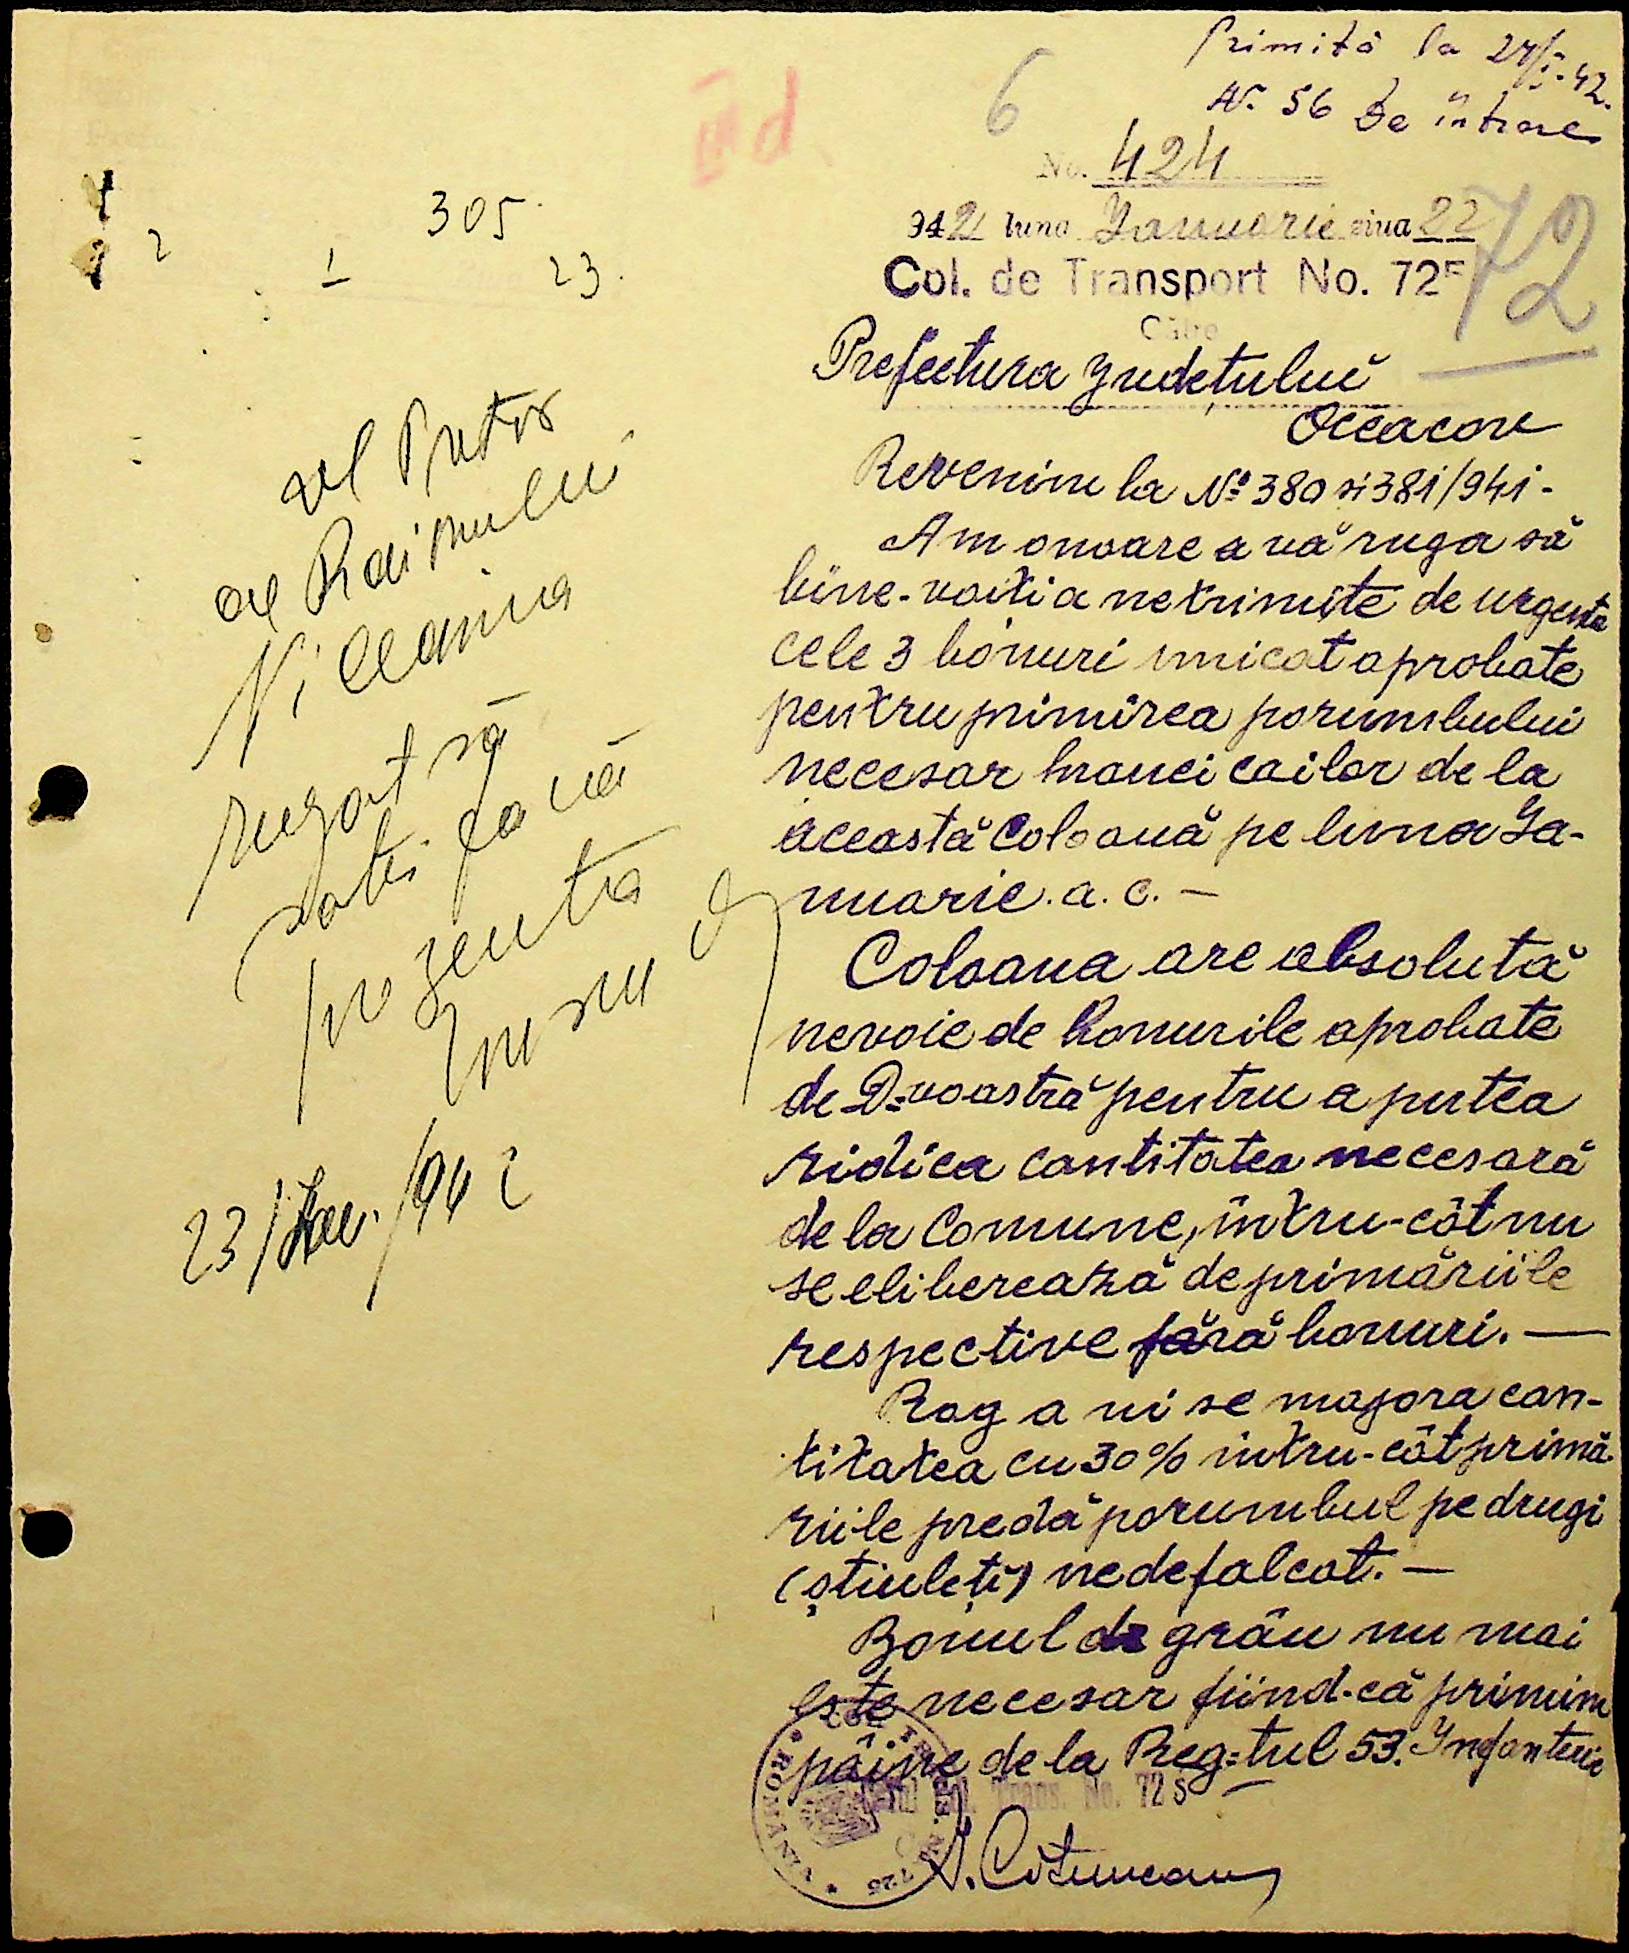 Primită la 24/I-42.
Nr. 56 De intrare
6
No. 424
942 luna Ianuarie ziua 22
72
Col. de Transport No. 725
Către
Prefectura Județului
Oceacov
Revenim la No 380 și 381/941-
Am onoare a vă ruga să
bine-voiti a ne trimite de urgență
cele 3 bonuri unicat aprobate
pentru primirea porumbului
necesar hranei cailor de la
această Coloană pe luna Ia-
nuarie. a. c. —
Coloana are absolută
nevoie de bonurile aprobate
de D-voastră pentru a putea
ridica cantitatea necesară
de la Comune, întru-cât nu
se eliberează de primăriile
respective fără bonuri. —
Rog a ni se majora can-
titatea cu 30% întru-cât primă-
riile predă porumbul pe drugi
(știuleți) nedefalcat. —
Bonul de grâu nu mai
este necesar fiind-că primim
pâine de la Reg-tul 53. Infanterie
Col. Trans. No. 725
ROMÂNIA
305
2 1 23.
Dl Pretor
al Raionului
rugat să
satisfacă
prezenta
23/Ian./942